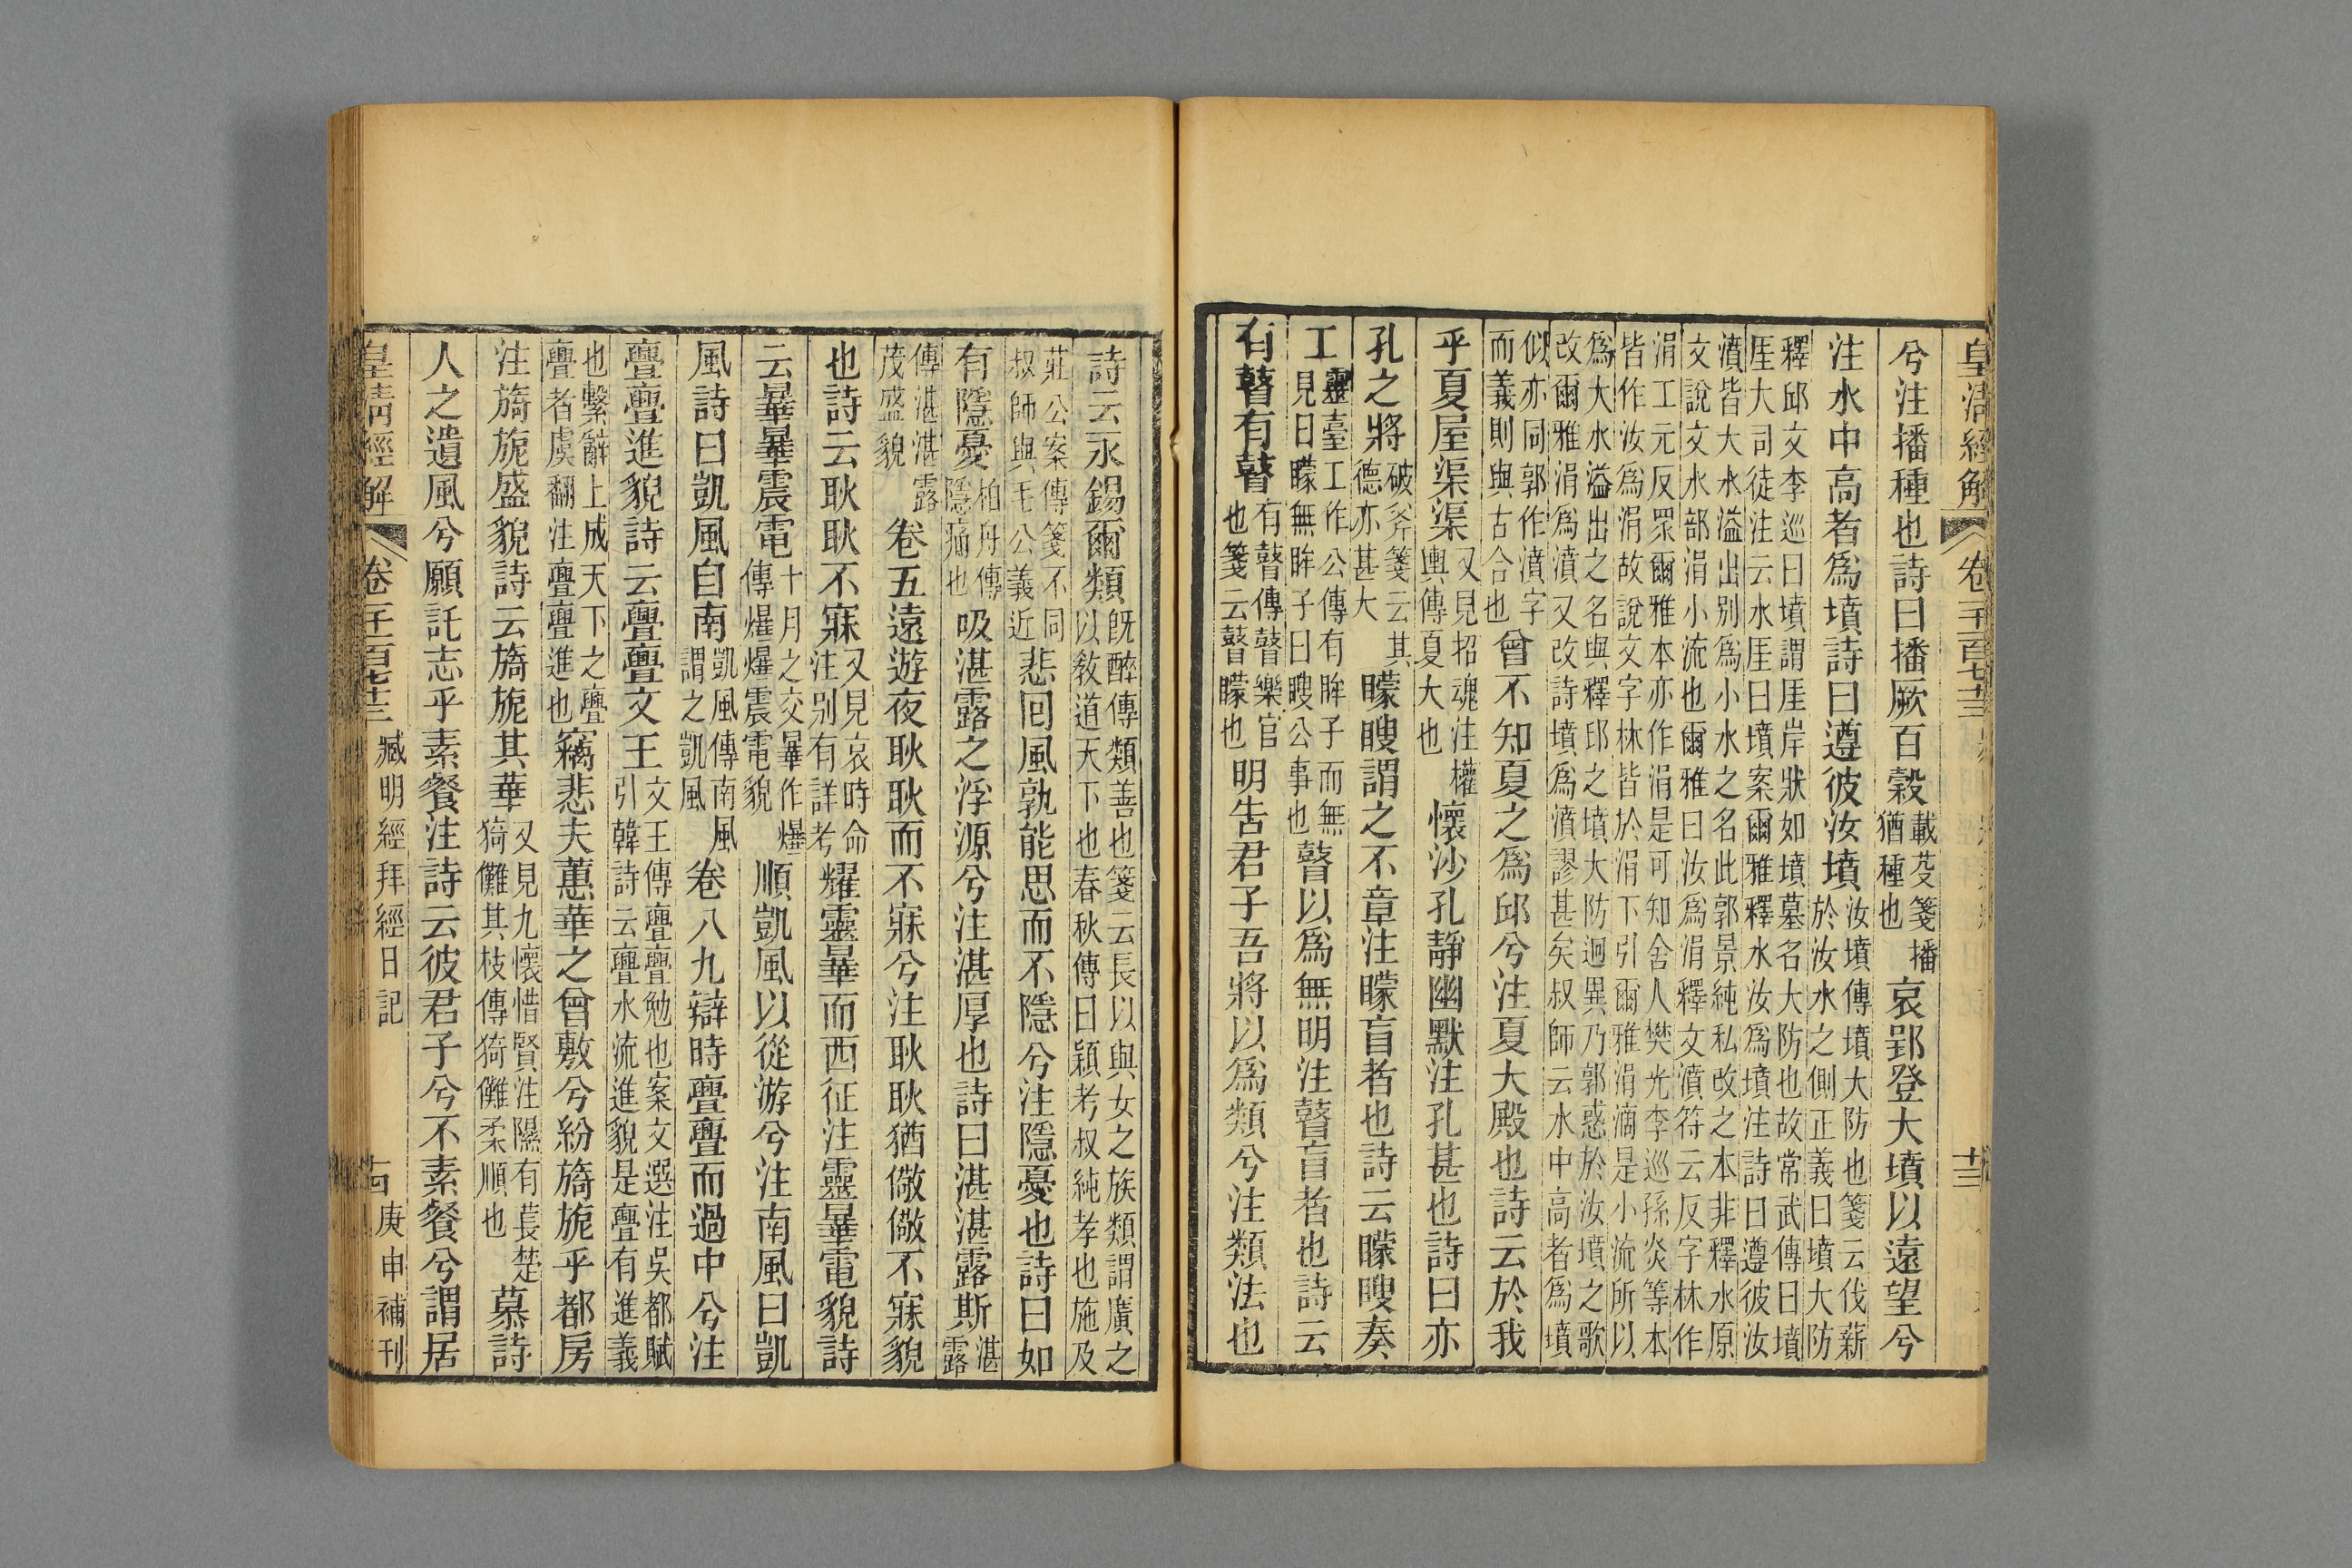 皇清經解 卷一千一百七十三 十三
兮注播種也詩曰播厥百穀載芟箋播猶種也哀郢登大墳以遠望兮
注水中高者爲墳詩曰遵彼汝墳汝墳傳墳大防也箋云伐薪於汝水之側正義曰墳大防
釋邱文李巡曰墳謂厓岸狀如墳墓名大防也故常武傳曰墳厓大司徒注云水厓曰墳案爾雅釋水汝爲墳注詩曰遵彼汝
濆皆大水溢出别爲小水之名此郭景純私改之本非釋水原文說文水部涓小流也爾雅曰汝爲涓釋文濆符云反字林作
涓工元反眾爾雅本亦作涓是可知舍人樊光李巡孫炎等本皆作汝爲涓故說文字林皆於涓下引爾雅涓滴是小流所以
爲大水溢出之名與釋邱之墳大防迥異乃郭惑於汝墳之歌改爾雅涓爲濆又改詩墳爲濆謬甚矣叔師云水中高者爲墳
似亦同郭作濆字而義則與古合也曾不知夏之爲邱兮注夏大殿也詩云於我
乎夏屋渠渠又見招魂注權輿傳夏大也懷沙孔靜幽默注孔甚也詩曰亦
孔之將破斧箋云其德亦甚大矇瞍謂之不章注矇盲者也詩云矇瞍奏
工靈臺工作公傳有眸子而無見曰矇無眸子曰瞍公事也瞽以爲無明注瞽盲者也詩云
有瞽有瞽有瞽傳瞽樂官也箋云瞽矇也明告君子吾將以爲類兮注類法也
詩云永錫爾類既醉傳類善也箋云長以與女之族類謂廣之以敎道天下也春秋傳曰穎考叔純孝也施及
莊公案傳箋不同叔師與毛公義近悲回風孰能思而不隱兮注隱憂也詩曰如
有隱憂柏舟傳隱痛也吸湛露之浮源兮注湛厚也詩曰湛湛露斯湛露
傳湛湛露茂盛貌卷五遠遊夜耿耿而不寐兮注耿耿猶儆儆不寐貌
也詩云耿耿不寐又見哀時命注别有詳考耀靈曅而西征注靈曅電貌詩
云曅曅震電十月之交曅作爗傳爗爗震電貌順凱風以從游兮注南風曰凱
風詩曰凱風自南凱風傳南風謂之凱風卷八九辯時亹亹而過中兮注
亹亹進貌詩云亹亹文王文王傳亹亹勉也案文選注吳都賦引韓詩云亹水流進貌是亹有進義
也繫辭上成天下之亹亹者虞翻注亹亹進也竊悲夫蕙華之曾敷兮紛旖旎乎都房
注旖旎盛貌詩云旖旎其華又見九懷惜賢注隰有萇楚猗儺其枝傳猗儺柔順也慕詩
人之遺風兮願託志乎素餐注詩云彼君子兮不素餐兮謂居
皇清經解 卷一千一百七十三 臧明經拜經日記 十四 庚申補刊